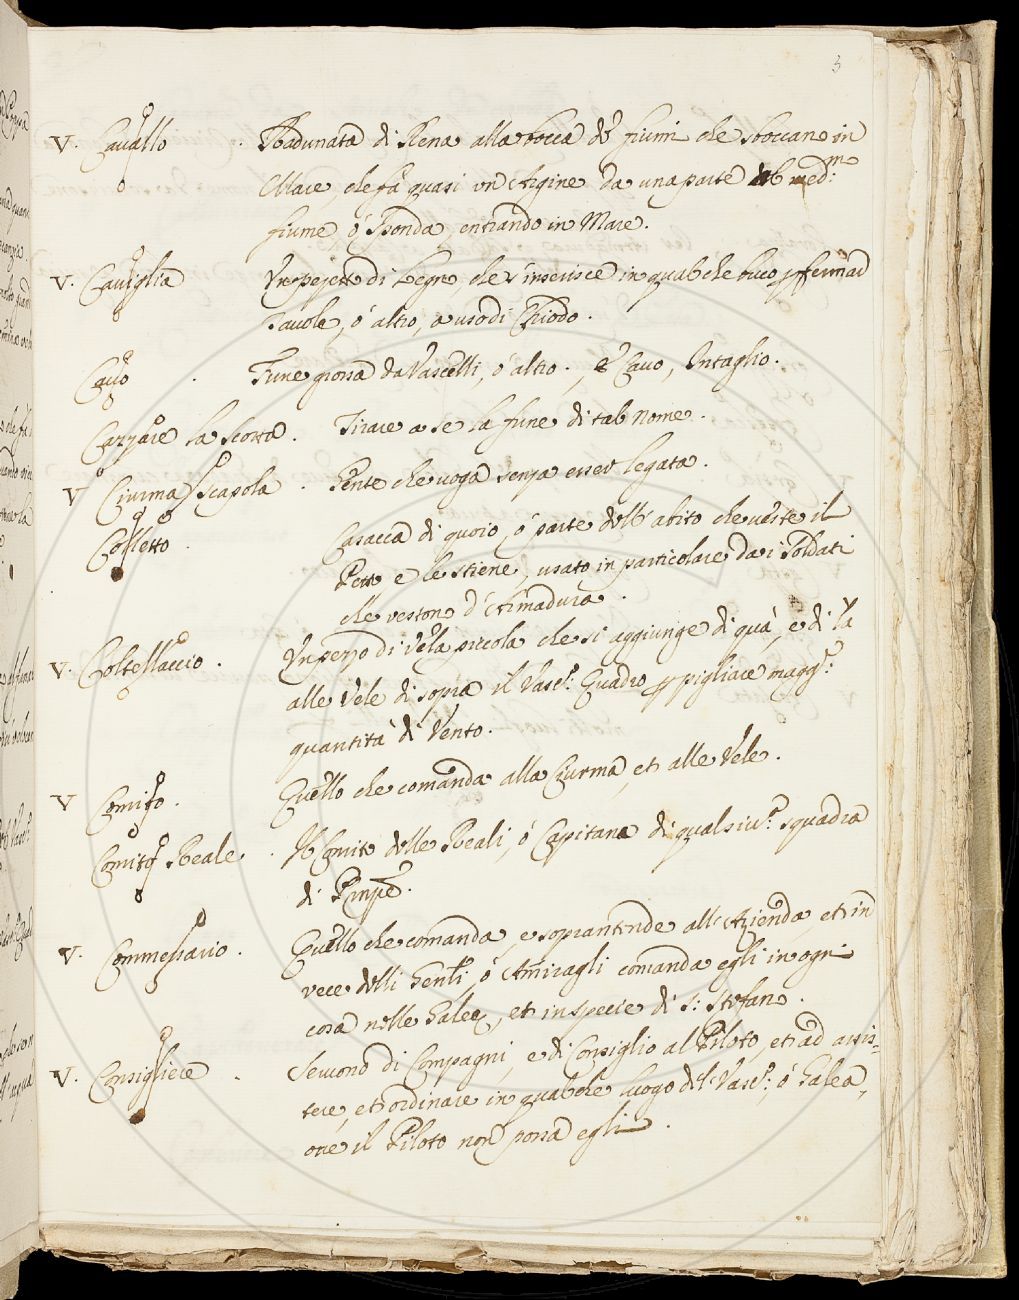 3
V. Cavallo . Radunata di Rena alla bocca de fiumi che sboccano in
Mare, che fà quasi un Argine da una parte del med.mo
fiume, ó sponda, entrando in Mare.
V. Caviglia Un pezzetto di Legno, che s'inserisce in qualche buco p fermar
Tavole, ó altro, a uso di Chiodo.
Cavo . Fune grossa da Vascelli, ó altro., è Cavo, Intaglio.
Cazzare la Scotta. Tirare a se la fune di tal nome.
V Ciurma Scapola . Gente che voga senza esser legata.
Colletto . Casacca di quoio, ó parte dell'abito che veste il
Petto e le stiene, usato in particolare da i Soldati
che veston d'Armadura.
V. Coltellaccio. Un pezzo di vela piccola che si aggiunge di quà, e di là
alle Vele di sopra il Vasc.o Quadro p pigliare magg.r
quantità di Vento.
V Comito. Quello che comanda alla Ciurma, et alle Vele.
Comito Reale. Il Comito delle Reali, ó Capitana di qualsiv.a squadra
di
V. Commessario. Quello che comanda, e soprantende all'Azienda, et in
vece delli Gen.li, ó Amiragli comanda egli in ogni
cosa nelle Galee, et in specie di S: Stefano.
V. Consigliere . Servono di Compagni, e di Consiglio al Piloto, et ad assis=
tere, et ordinare in qualche luogo del Vasc.o, ó Galea,
ove il Piloto non possa egli.